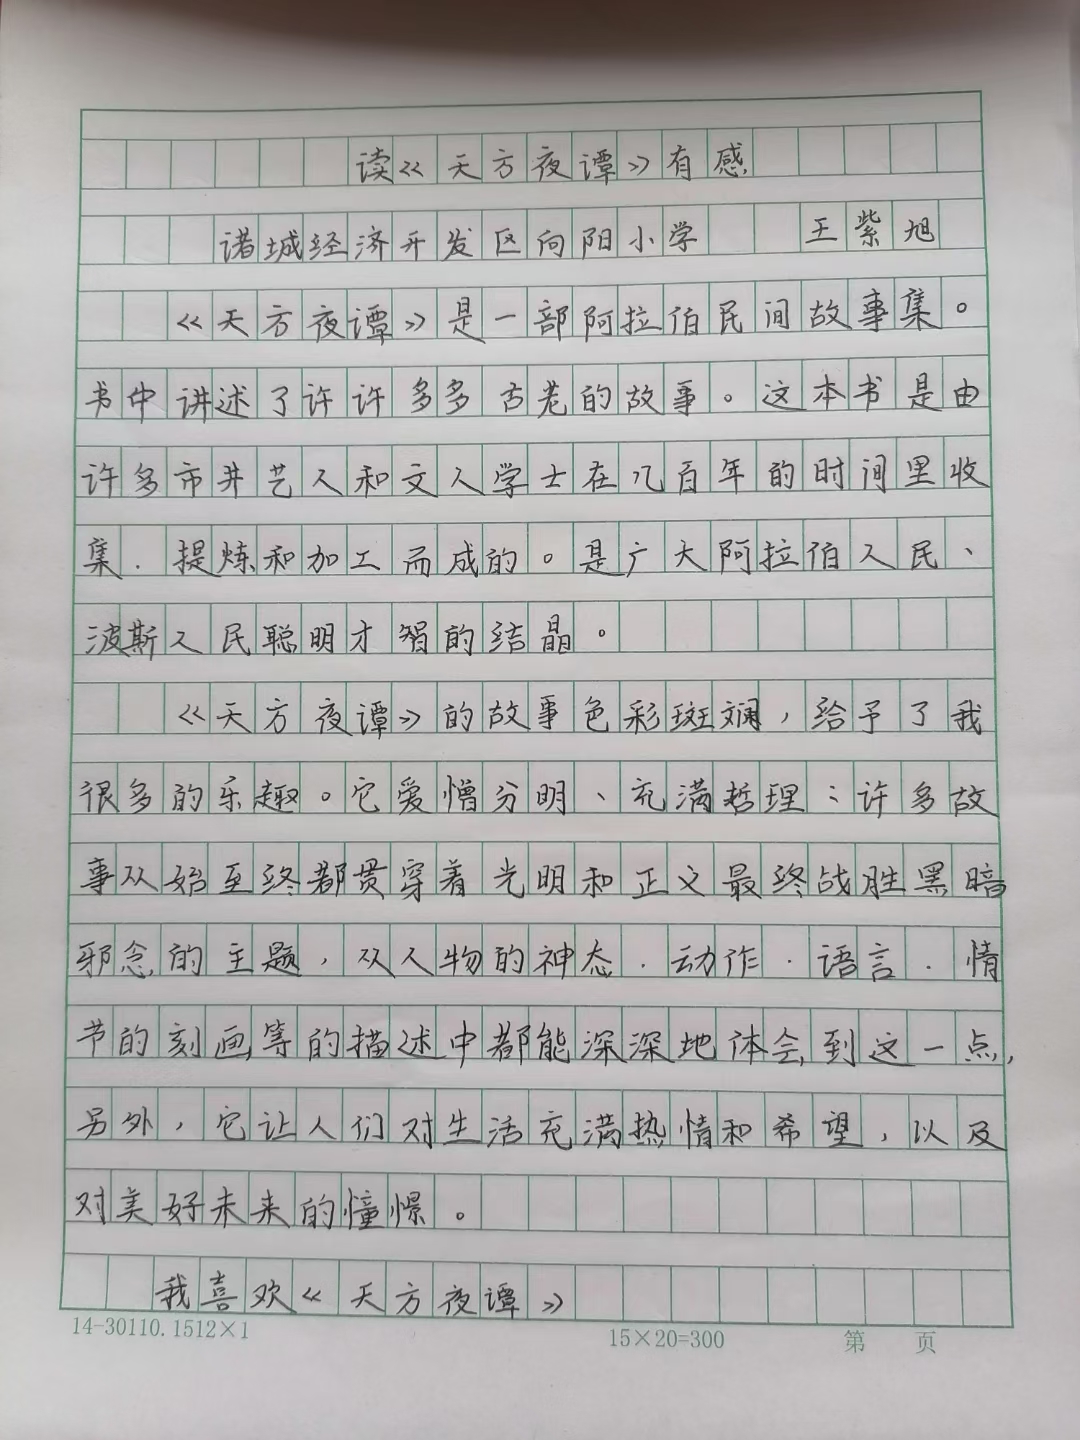 读《天方夜谭》有感
诸城经济开发区向阳小学 王紫旭
《天方夜谭》是一部阿拉伯民间故事集。
书中讲述了许许多多古老的故事。这本书是由
许多市井艺人和文人学士在几百年的时间里收
集.提炼和加工而成的。是广大阿拉伯人民、
波斯人民聪明才智的结晶。
《天方夜谭》的故事色彩斑斓,给予了我
很多的乐趣。它爱憎分明、充满哲理:许多故
事从始至终都贯穿着光明和正义最终战胜黑暗
邪念的主题,从人物的神态.动作.语言.情
节的刻画等的描述中都能深深地体会到这一点,
另外,它让人们对生活充满热情和希望,以及
对美好未来的憧憬。
我喜欢《天方夜谭》
14-30110.1512×1 15×20=300 第 页